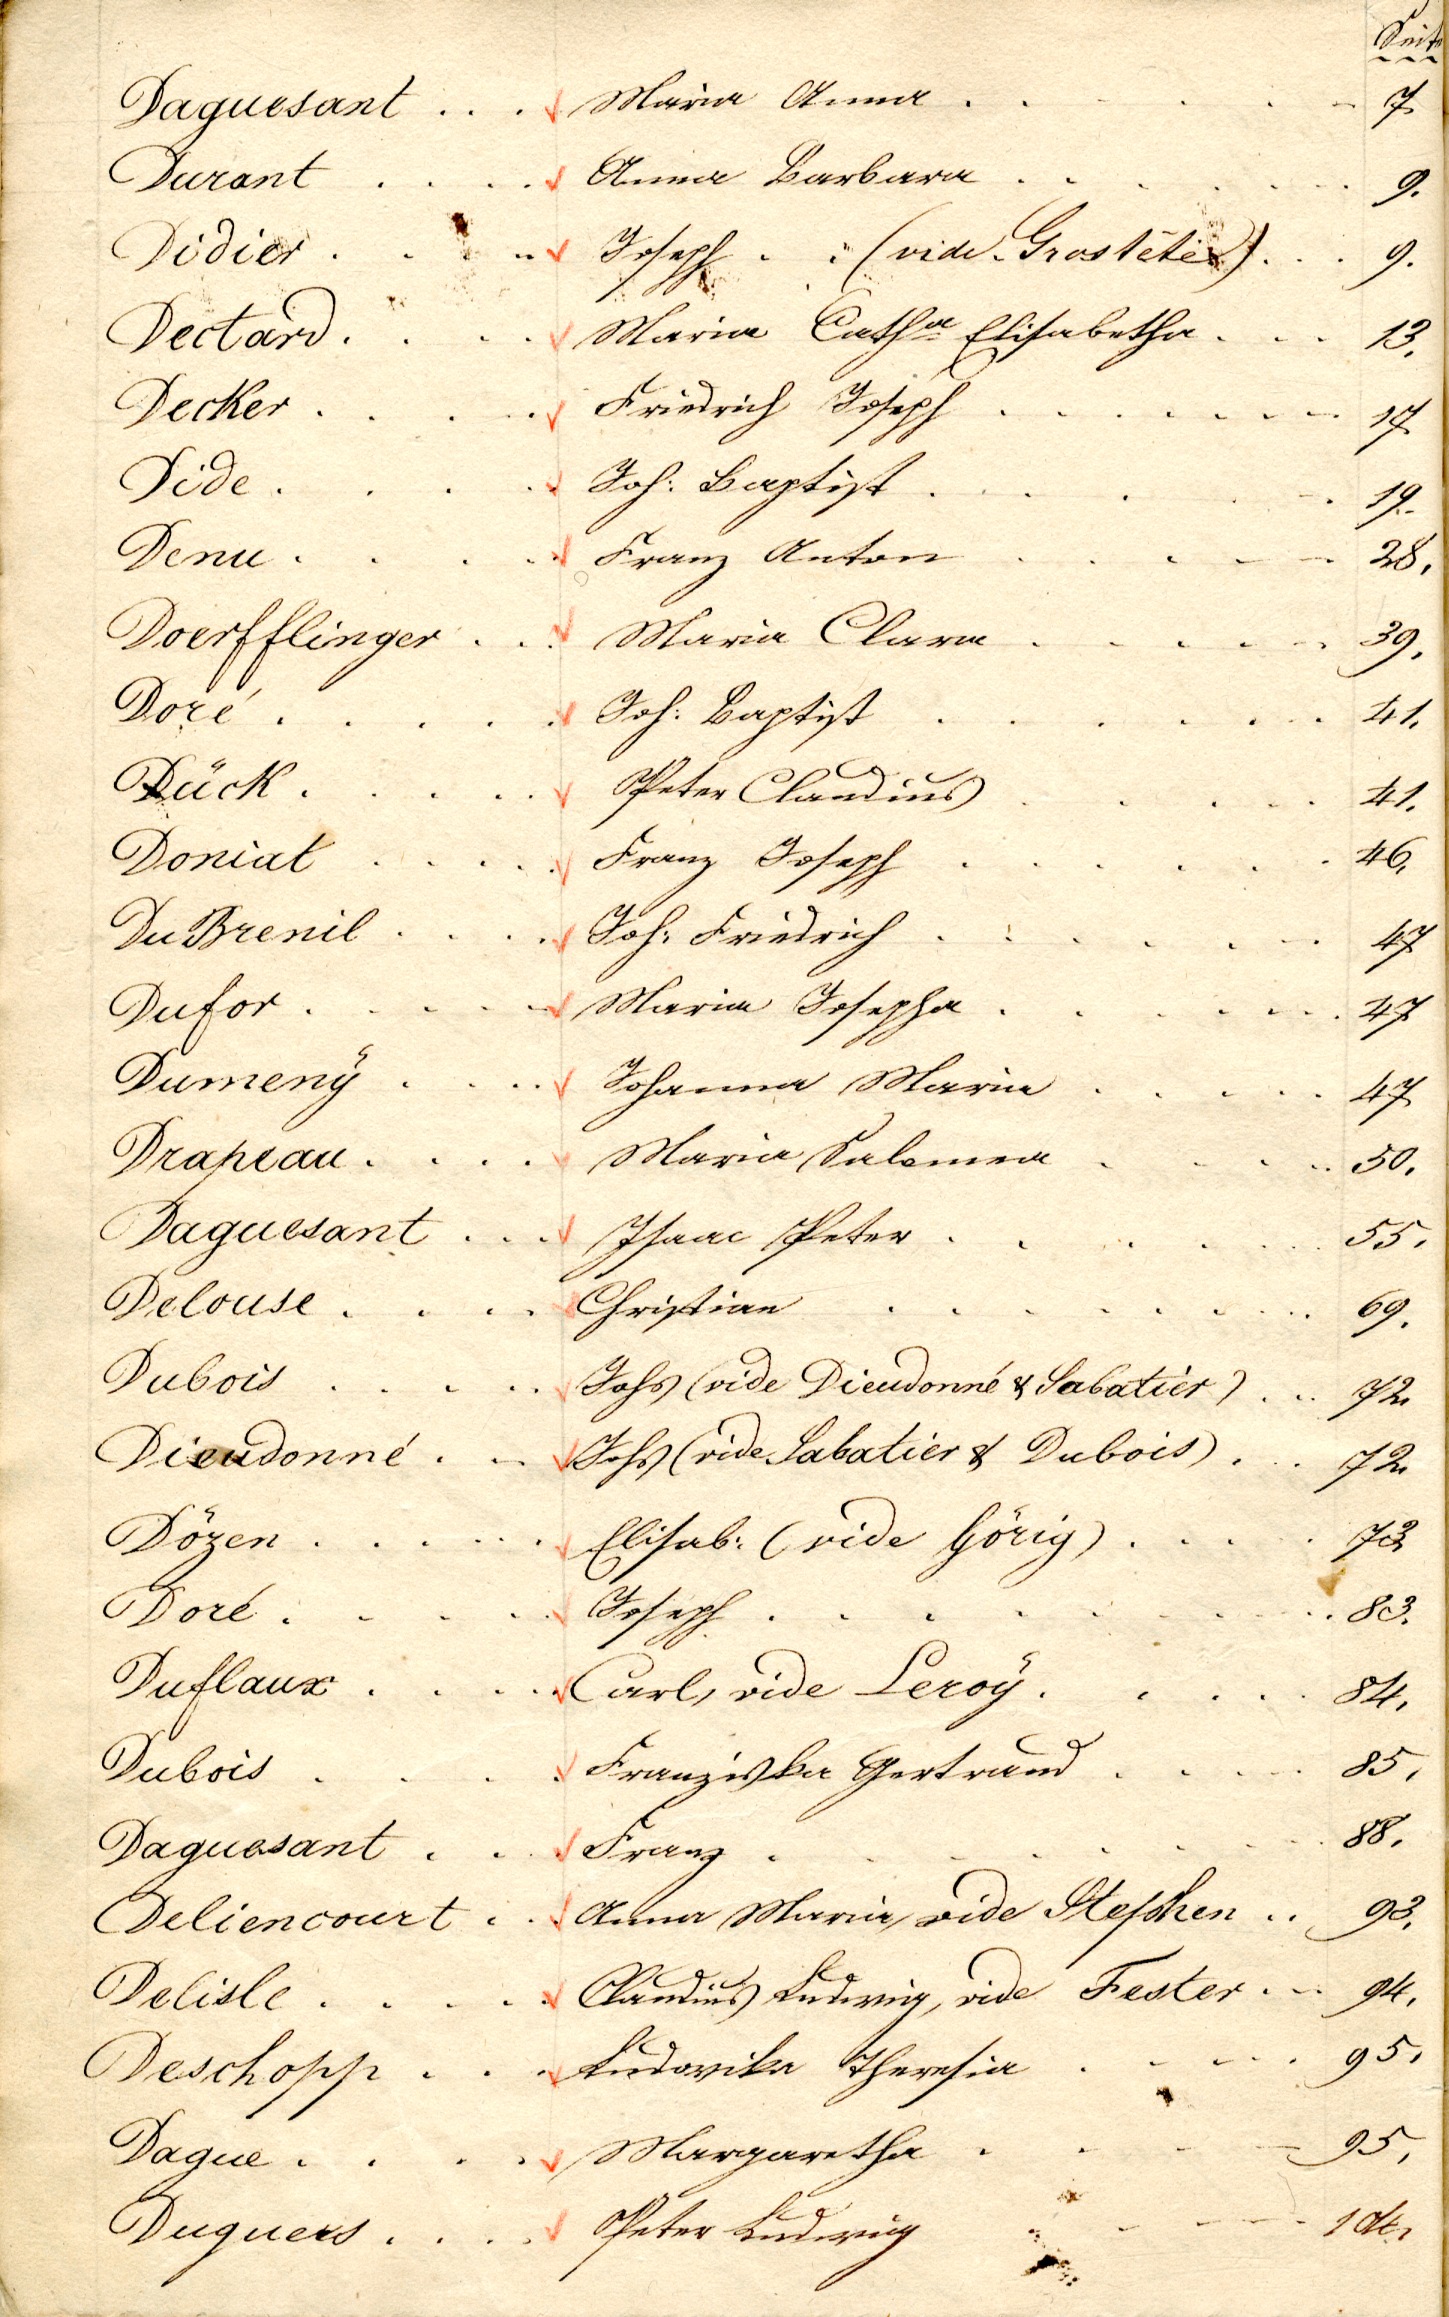 Seite
Daguesant . . . Maria Anna . . . . . . 7
Durant . . . . Anna Barbara . . . . . . 9.
Didier . . . Joseph . . (vide Grostêtê) . . . 9.
Dectard . . . . Maria Cath.a Elisabetha . . . 13.
Decker . . . . Friedrich Joseph . . . . . . . 17
Dide . . . . . Joh: Baptist . . . . . . 19.
Denu . . . . . Franz Anton . . . . . 28.
Doerfflinger . . . Maria Clara . . . . . 39.
Doré . . . . . Joh: Baptist . . . . . . 41.
Dück . . . . . Peter Claudius . . . . . 41.
Doniat . . . . Franz Joseph . . . . . . 46.
Du Brenil . . . . Joh: Friedrich . . . . . . 47
Dufor . . . . . Maria Josepha . . . . . . 47
Dumenÿ . . . . Johanna Maria . . . . . 47
Drapeau . . . . Maria Salomea . . . . . 50.
Daguesant . . . Isaac Peter . . . . . . 55.
Delouse . . . . Christian . . . . . . . . 69.
Dubois . . . . . Johs (vide Dieudonné & Sabatier) . . . 72.
Dieudonné . . Johs (vide Sabatier & Dubois) . . . 72.
Dözen . . . . . Elisab: (vide Görig) . . . . . 73
Doré . . . . . Joseph . . . . . . . . . 83.
Duflaux . . . . Carl, vide Leroÿ . . . . . 84.
Dubois . . . . Franziska Gertraud . . . . 85.
Daguesant . . . Franz . . . . . . . 88.
Deliencourt . . . Anna Maria, vide Stephen . . 93.
Delisle . . . . . Claudius Ludwig, vide Fester . . . 94.
Deschopp . . . Ludovika Theresia . . . . . 95.
Dague . . . . Margaretha . . . . 95.
Duguers . . . . Peter Ludwig . . . . 104.